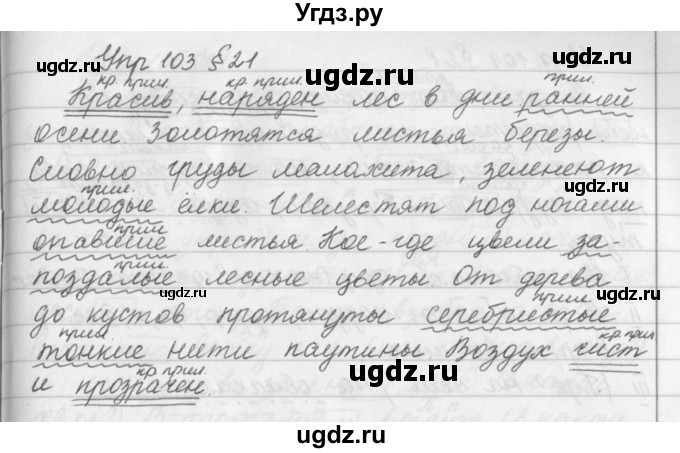 Угдз.ру
Упр 103 § 21
кр. прил. кр. прил. прил.
Красив, наряден лес в дни ранней
осени. Золотятся листья березы.
Словно груды малахита, зеленеют
прил.
молодые ёлки. Шелестят под ногами
прил
опавшие листья. Кое-где цвели за-
прил.
поздалые лесные цветы. От дерева
прил.
до кустов протянуты серебристые
прил. кр. прил
тонкие нити паутины Воздух чист
кр. прил.
и прозрачен.
ugdz.ru
ugdz.ru
ugdz.ru
ugdz.ru
ugdz.ru
ugdz.ru
ugdz.ru
ugdz.ru
ugdz.ru
ugdz.ru
ugdz.ru
ugdz.ru